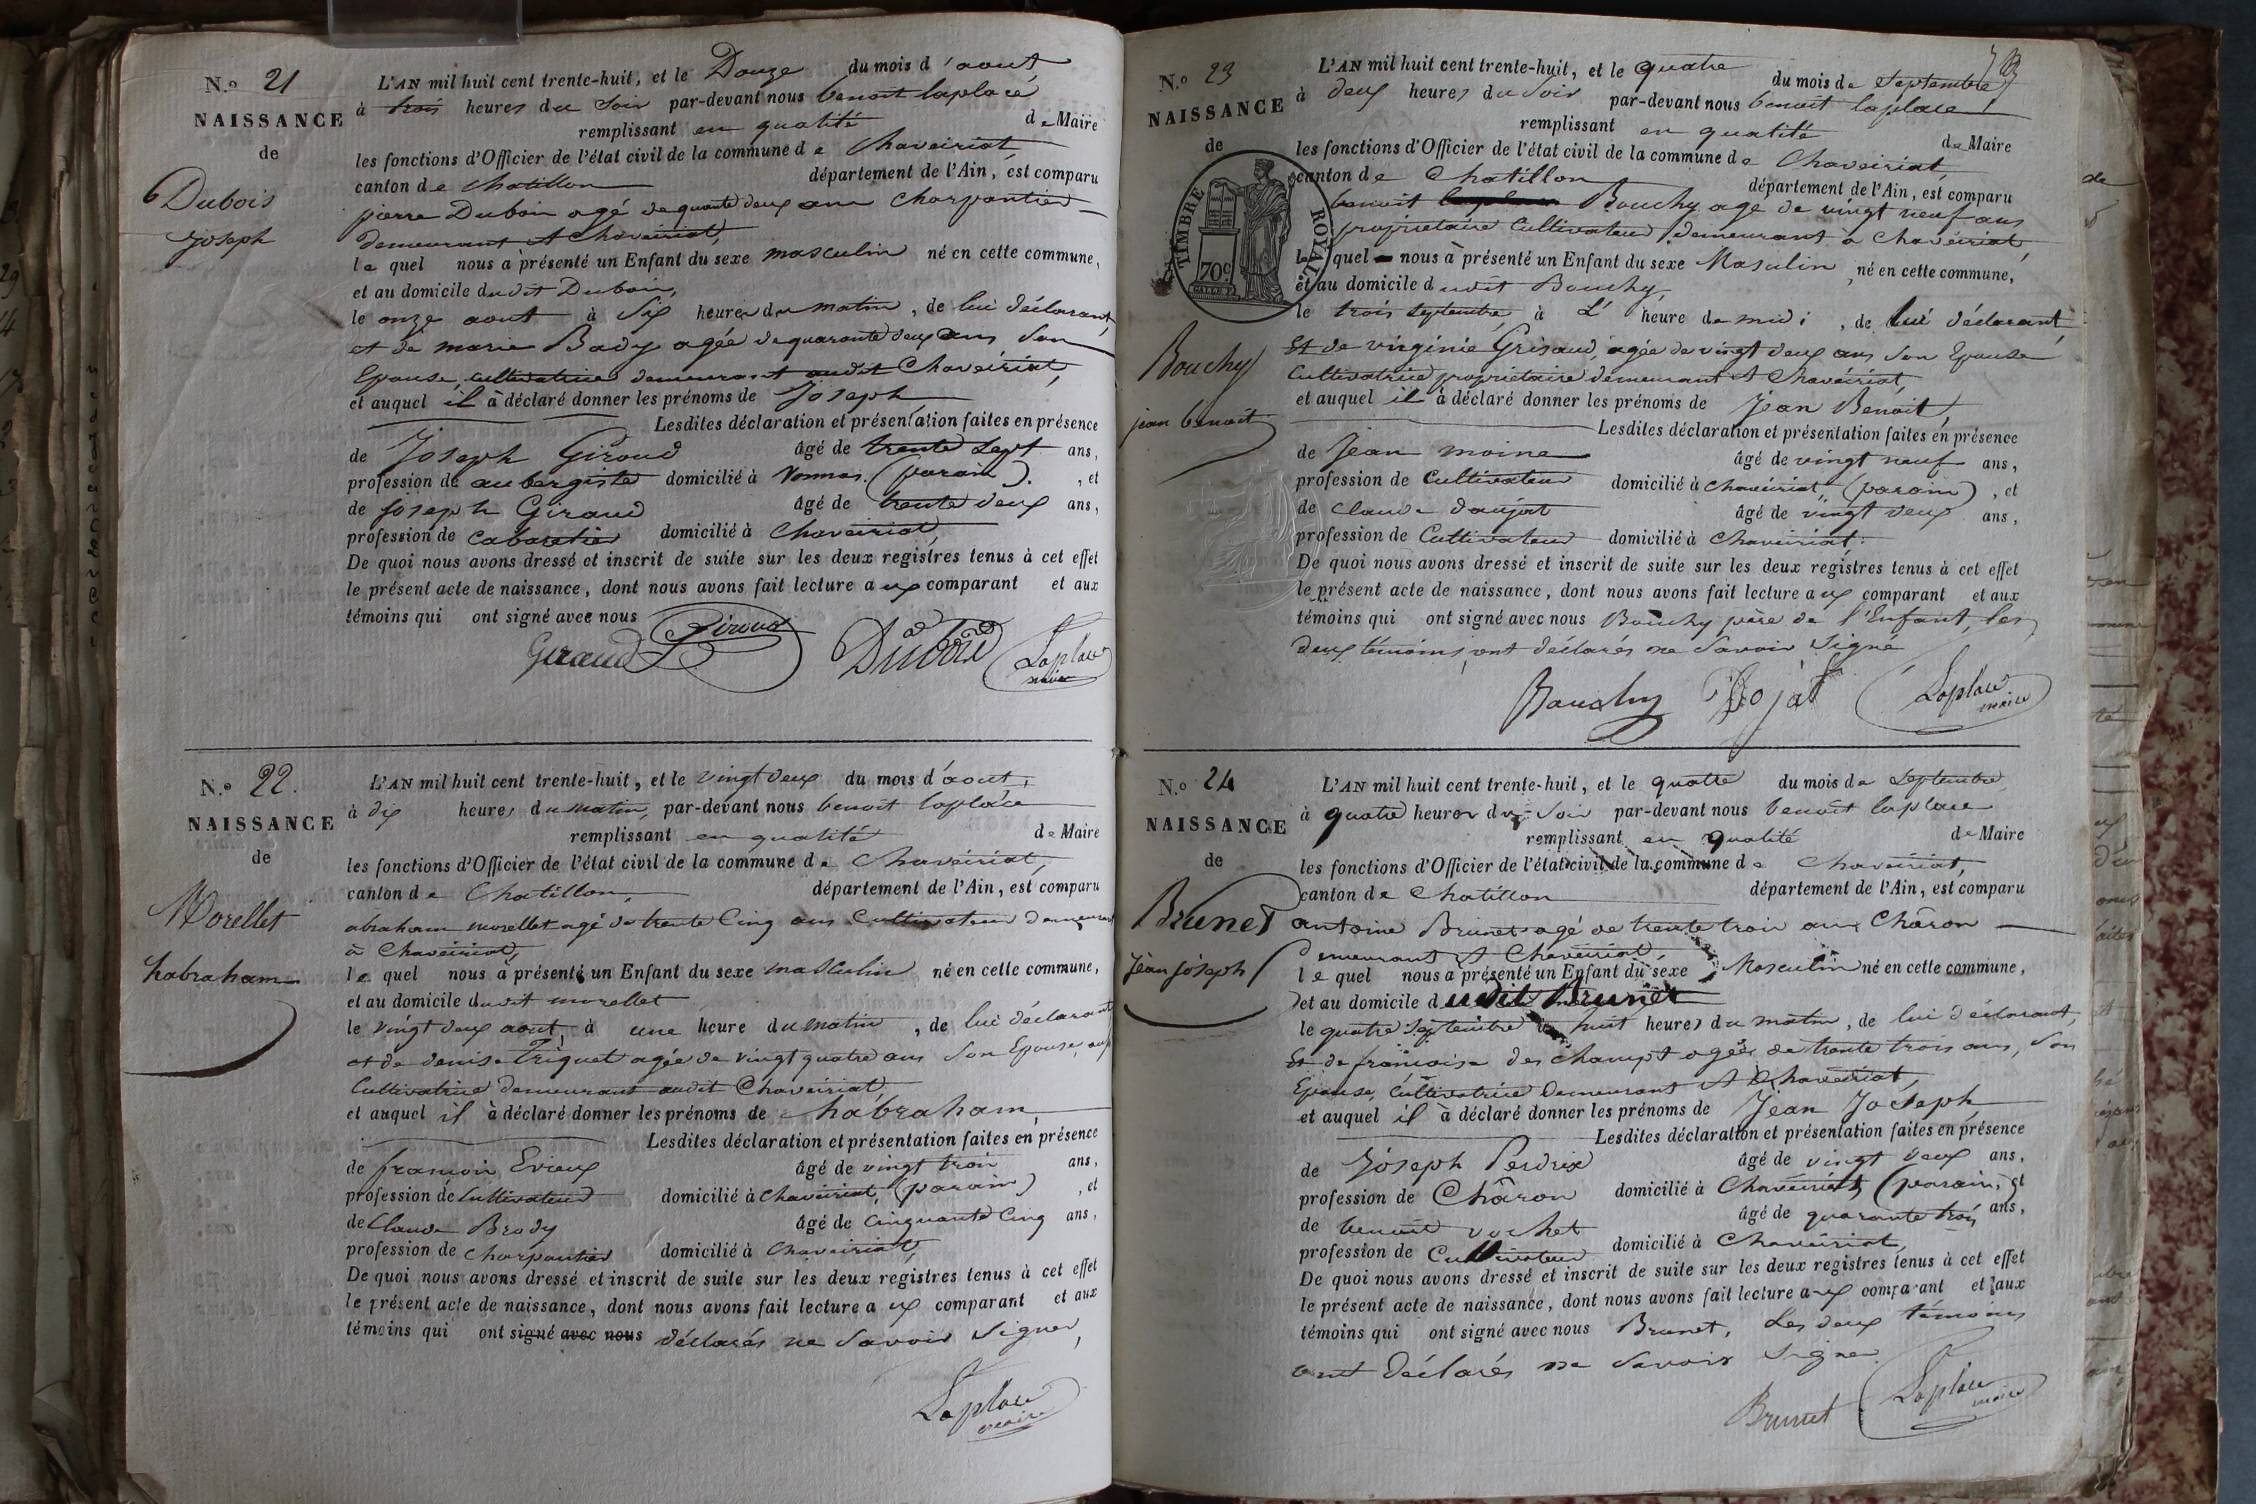 N.o 21
NAISSANCE
de
Dubois
Joseph
L'AN mil huit cent trente-huit, et le Douze du mois d'aout
à trois heures du Soir par-devant nous benoit laplace
remplissant en qualité de Maire
les fonctions d'Officier de l'état civil de la commune de Chaveiriat
canton de chatillon département de l'Ain, est comparu
pierre Dubois agé de quarante deux ans charpentier
demeurant A Chaveiriat,
le quel nous a présenté un Enfant du sexe masculin né en cette commune,
et au domicile dudit Dubois,
le onze aout à Six heures du matin, de lui déclarant
et de marie Bady agée de quarante deux ans Son
Epouse, cultivatrice demeurant audit Chaveiriat,
et auquel il à déclaré donner les prénoms de Joseph
Lesdites déclaration et présentation faites en présence
de Joseph Giroud âgé de trente Sept ans,
profession de aubergiste domicilié à Vonnas. (parain). , et
de Joseph Giraud âgé de trente deux ans,
profession de cabaretier domicilié à Chaveiriat,
De quoi nous avons dressé et inscrit de suite sur les deux registres tenus à cet effet
le présent acte de naissance, dont nous avons fait lecture aux comparant et aux
témoins qui ont signé avec nous Giroud
Giraud Dubois Laplace
maire
N.o 22.
NAISSANCE
de
Morellet
habraham
L'AN mil huit cent trente-huit, et le vingt deux du mois d'aout,
à dix heures du matin, par-devant nous benoit laplace
remplissant en qualité de Maire
les fonctions d'Officier de l'état civil de la commune de Chaveiriat,
canton de Chatillon, département de l'Ain, est comparu
abraham morellet agé de trente Cinq ans Cultivateur demeurant
à Chaveiriat,
le quel nous a présenté un Enfant du sexe masculin né en cette commune,
et au domicile dudit morellet
le vingt deux aout à une heure du matin, de lui déclarant
et de denise Triquet agée de vingt quatre ans Son Epouse, aussi
Cultivatrice demeurant audit Chaveiriat,
et auquel il à déclaré donner les prénoms de habraham
Lesdites déclaration et présentation faites en présence
de francois Evieux âgé de vingt trois ans,
profession de Cultivateur domicilié à Chaveiriat, (parain) , et
de Claude Brody âgé de Cinquante Cinq ans,
profession de charpentier domicilié à Chaveiriat,
De quoi nous avons dressé et inscrit de suite sur les deux registres tenus à cet effet
le présent acte de naissance, dont nous avons fait lecture aux comparant et aux
témoins qui ont signé avec nous déclarés ne Savoir Signer,
Laplace
maire
N.o 23
NAISSANCE
de
TIMBRE ROYAL
70c
Bouchy
jean benoit
L'AN mil huit cent trente-huit, et le quatre du mois de Septembre
à deux heures du Soir par-devant nous benoit laplace
remplissant en qualité de Maire
les fonctions d'Officier de l'état civil de la commune de Chaveiriat,
canton de Chatillon département de l'Ain, est comparu
benoit laplace Bouchy agé de vingt neuf ans
propriétaire Cultivateur demeurant à Chaveiriat
le quel nous à présenté un Enfant du sexe Masculin, né en cette commune,
et au domicile dudit Bouchy,
le trois septembre à L' heure de midi, de lui déclarant
Et de virginie Grisaud, agée de vingt deux ans Son Epouse
Cultivatrice propriétaire demeurant A Chaveiriat,
et auquel il à déclaré donner les prénoms de Jean Benoit,
Lesdites déclaration et présentation faites en présence
de Jean moine âgé de vingt neuf ans,
profession de Cultivateur domicilié à chaveiriat (parain) , et
de claude daujat âgé de vingt deux ans,
profession de Cultivateur domicilié à Chaveiriat.
De quoi nous avons dressé et inscrit de suite sur les deux registres tenus à cet effet
le présent acte de naissance, dont nous avons fait lecture aux comparant et aux
témoins qui ont signé avec nous Bouchy père de l'Enfant, les
deux témoins, ont déclarés ne Savoir Signé
Bouchy Dojat Laplace
maire
N.o 24
NAISSANCE
de
Brunet
Jean joseph
L'AN mil huit cent trente-huit, et le quatre du mois de Septembre,
à quatre heures du Soir par-devant nous benoit laplace
remplissant en qualité de Maire
les fonctions d'Officier de l'état civil de la commune de Chaveiriat,
canton de Chatillon département de l'Ain, est comparu
antoine Brunet agé de trente trois ans Châron
Demeurant A Chaveiriat,
le quel nous a présenté un Enfant du sexe Masculin né en cette commune,
et au domicile dudit Brunet
le quatre Septembre à huit heures du matin, de lui déclarant,
Et de francoise des champt agée de trente trois ans, Son
Epouse, Cultivatrice Demeurant A Chaveiriat,
et auquel il à déclaré donner les prénoms de Jean Joseph
Lesdites déclaration et présentation faites en présence
de Joseph Perdrix âgé de vingt deux ans,
profession de Châron domicilié à Chaveiriat, (parain, et
de benoit vochet âgé de quarante trois ans,
profession de Cultivateur domicilié à Chaveiriat,
De quoi nous avons dressé et inscrit de suite sur les deux registres tenus à cet effet
le présent acte de naissance, dont nous avons fait lecture aux comparant et aux
témoins qui ont signé avec nous Brunet, Les deux témoins
ont Déclarés ne Savoir Signer
Brunet Laplace
maire